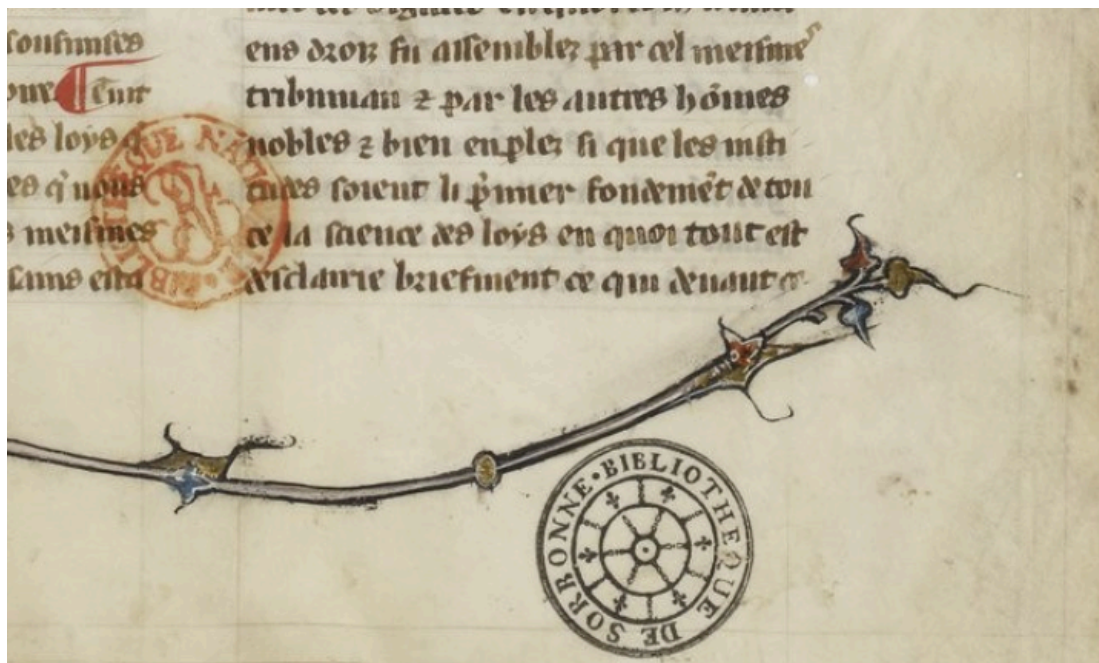 les loys
es q̃ nous
s meismes
sains esta
ens droiz fu assemblez par cel meisme
tribunian ⁊ par les autres hõmes
nobles ⁊ bien enplez si que les insti
tutes soient li p̃mier fondemẽt de tou
te la science des loys en quoi tout est
desclairie briefment ce qui deuant ce
BIBLIOTHEQUE NATI
BIBLIOTHEQUE DE SORBONNE